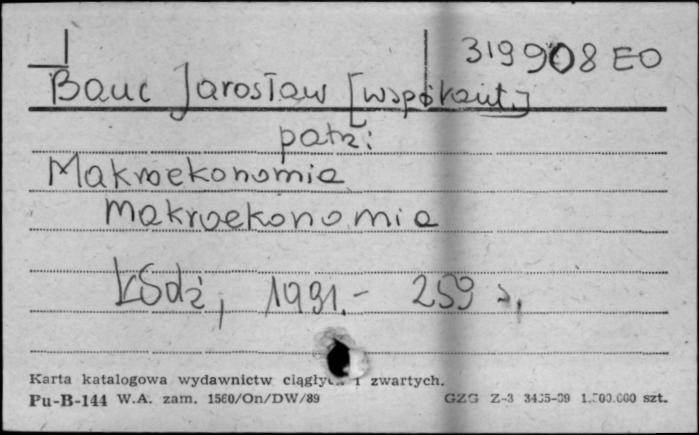 319908 EO
Bauc Jarosław [współaut.]
patrz:
Makroekonomia
Makroekonomia
Łódź, 1991.- 259 s.
Karta katalogowa wydawnictw ciągłych i zwartych.
Pu-B-144 W.A. zam. 1560/On/DW/89 GZG Z-3 1.500.000 szt.